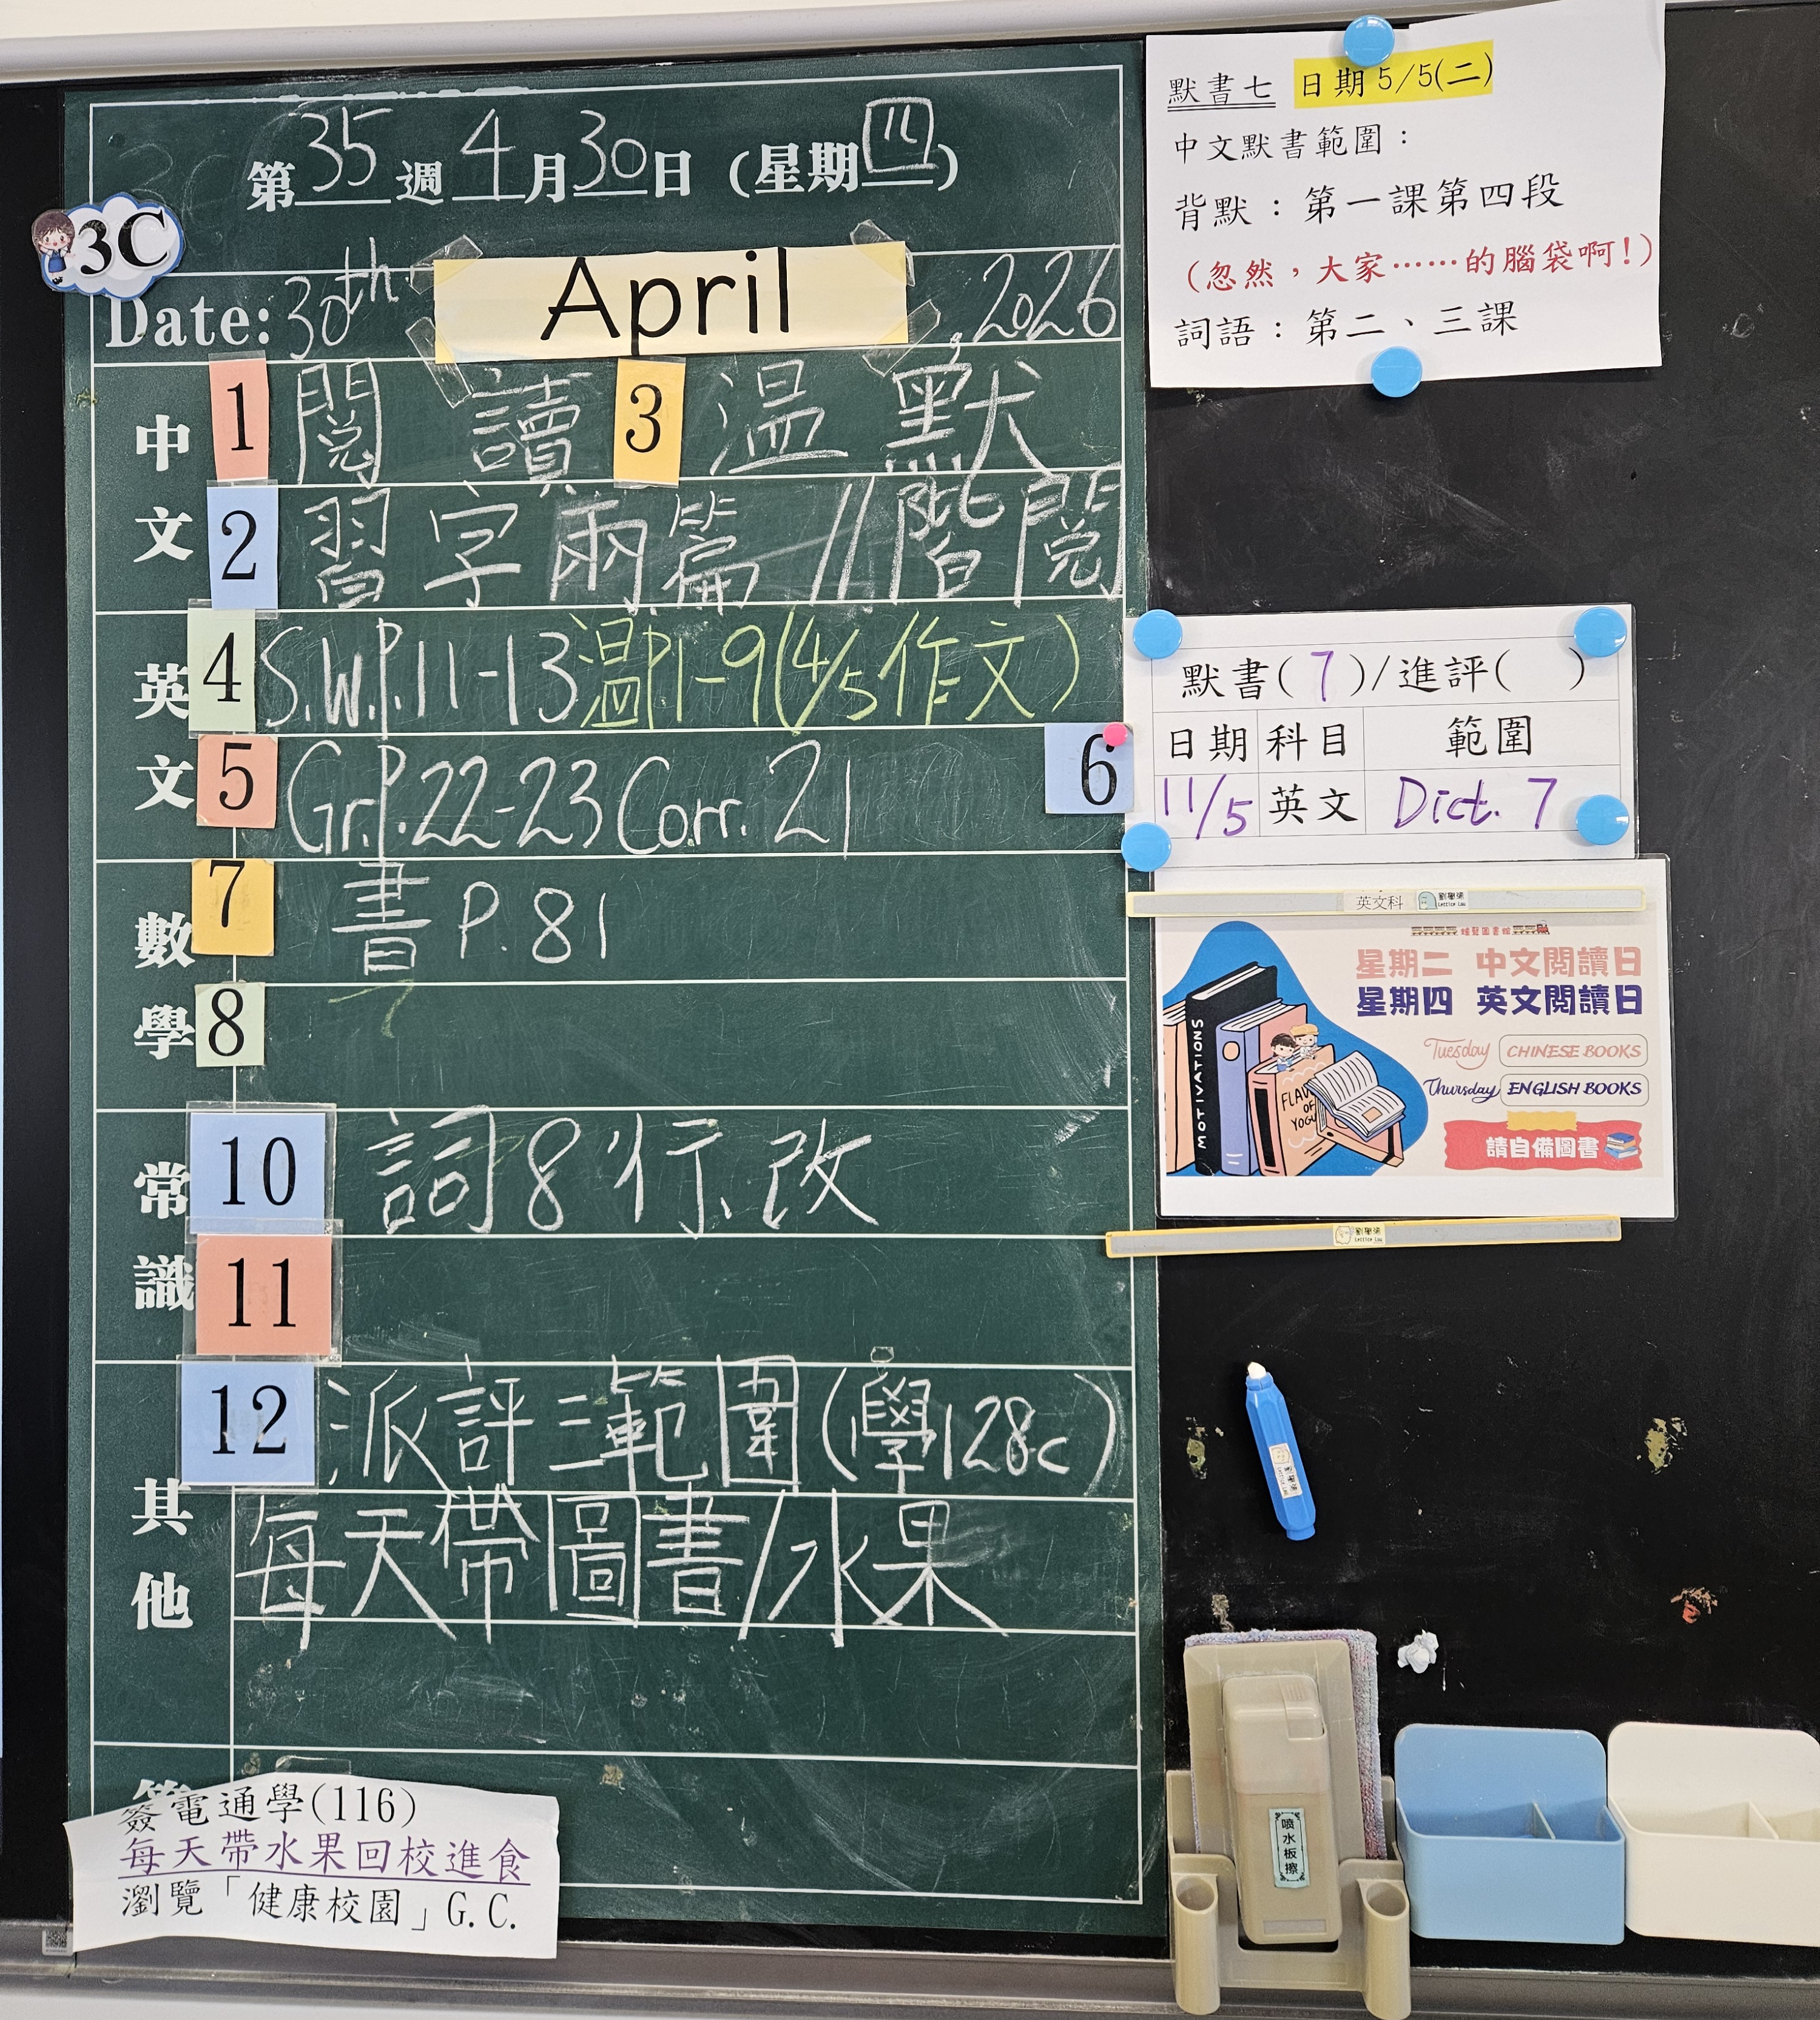 第35週4月30日(星期四)
3C
Date: 30th April, 2026
中文
1 閱讀 3 溫默
2 習字兩篇 // 階閱
英文
4 S.W.P.11-13 溫P.1-9(4/5作文)
5 Gr.P.22-23 Corr. 21
6
數學
7 書 P.81
8
常識
10 詞8行、改
11
其他
12 派評三範圍(學128c)
每天帶圖書/水果
簽電通學(116)
每天帶水果回校進食
瀏覽「健康校園」G.C.
默書七 日期5/5(二)
中文默書範圍：
背默：第一課第四段
(忽然，大家……的腦袋啊!)
詞語：第二、三課
默書(7)/進評( )
日期 科目 範圍
11/5 英文 Dict. 7
英文科 劉學漪 Lettice Lau
星期二 中文閱讀日
星期四 英文閱讀日
Tuesday CHINESE BOOKS
Thursday ENGLISH BOOKS
請自備圖書
MOTIVATIONS
FLAV
OF
YOGU
Lettice Lau
噴水板擦